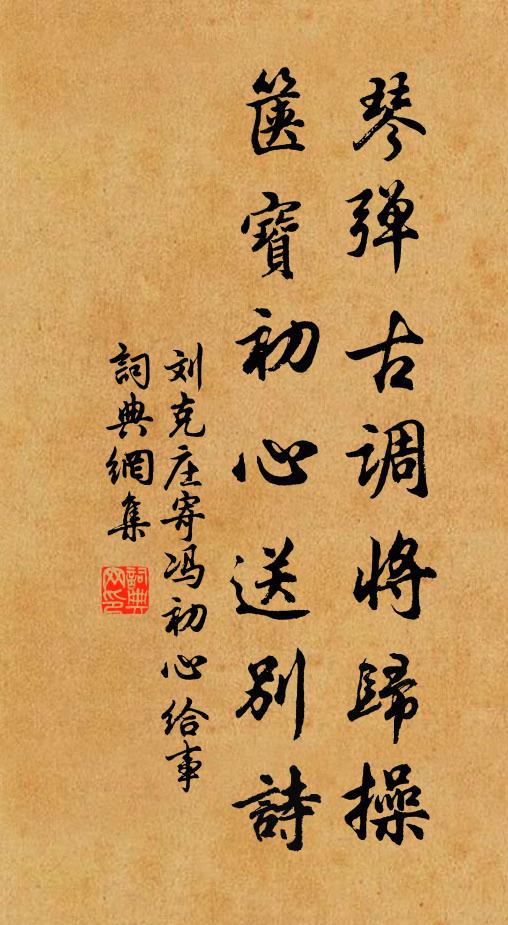 琴弹古调将歸操
箧寶初心送别詩
刘克庄寄冯初心给事
詞典網集
詞典网印